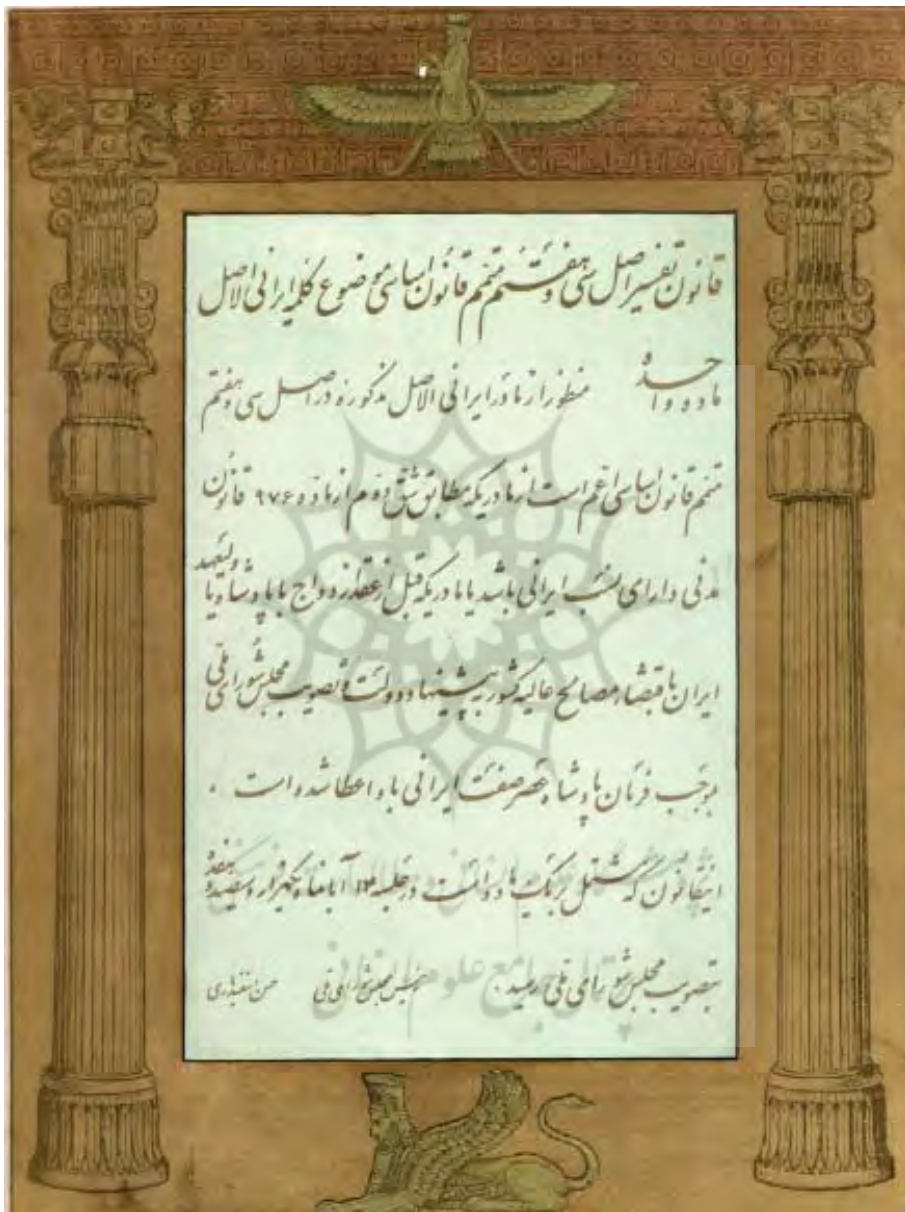 قانون تفسیر اصل سی و هفتم متمم قانون اساسی موضوع کلمه ایرانی الاصل
ماده واحده منظور از مادر ایرانی الاصل مذکوره در اصل سی و هفتم
متمم قانون اساسی اعم است از مادریکه مطابق شق دوم از ماده ۹۷۶ قانون
مدنی دارای نسب ایرانی باشد یا مادریکه قبل از عقد ازدواج با پادشاه و یا ولیعهد
ایران باقتضاء مصالح عالیه کشور به پیشنهاد دولت و تصویب مجلس شورای ملی
بموجب فرمان پادشاه عصر صفت ایرانی باو اعطا شده است .
این قانون که مشتمل بر یک ماده است در جلسه ۱۴ آبانماه یکهزار و سیصد و هفده
بتصویب مجلس شورای ملی رسید رئیس مجلس شورای ملی حسن اسفندیاری